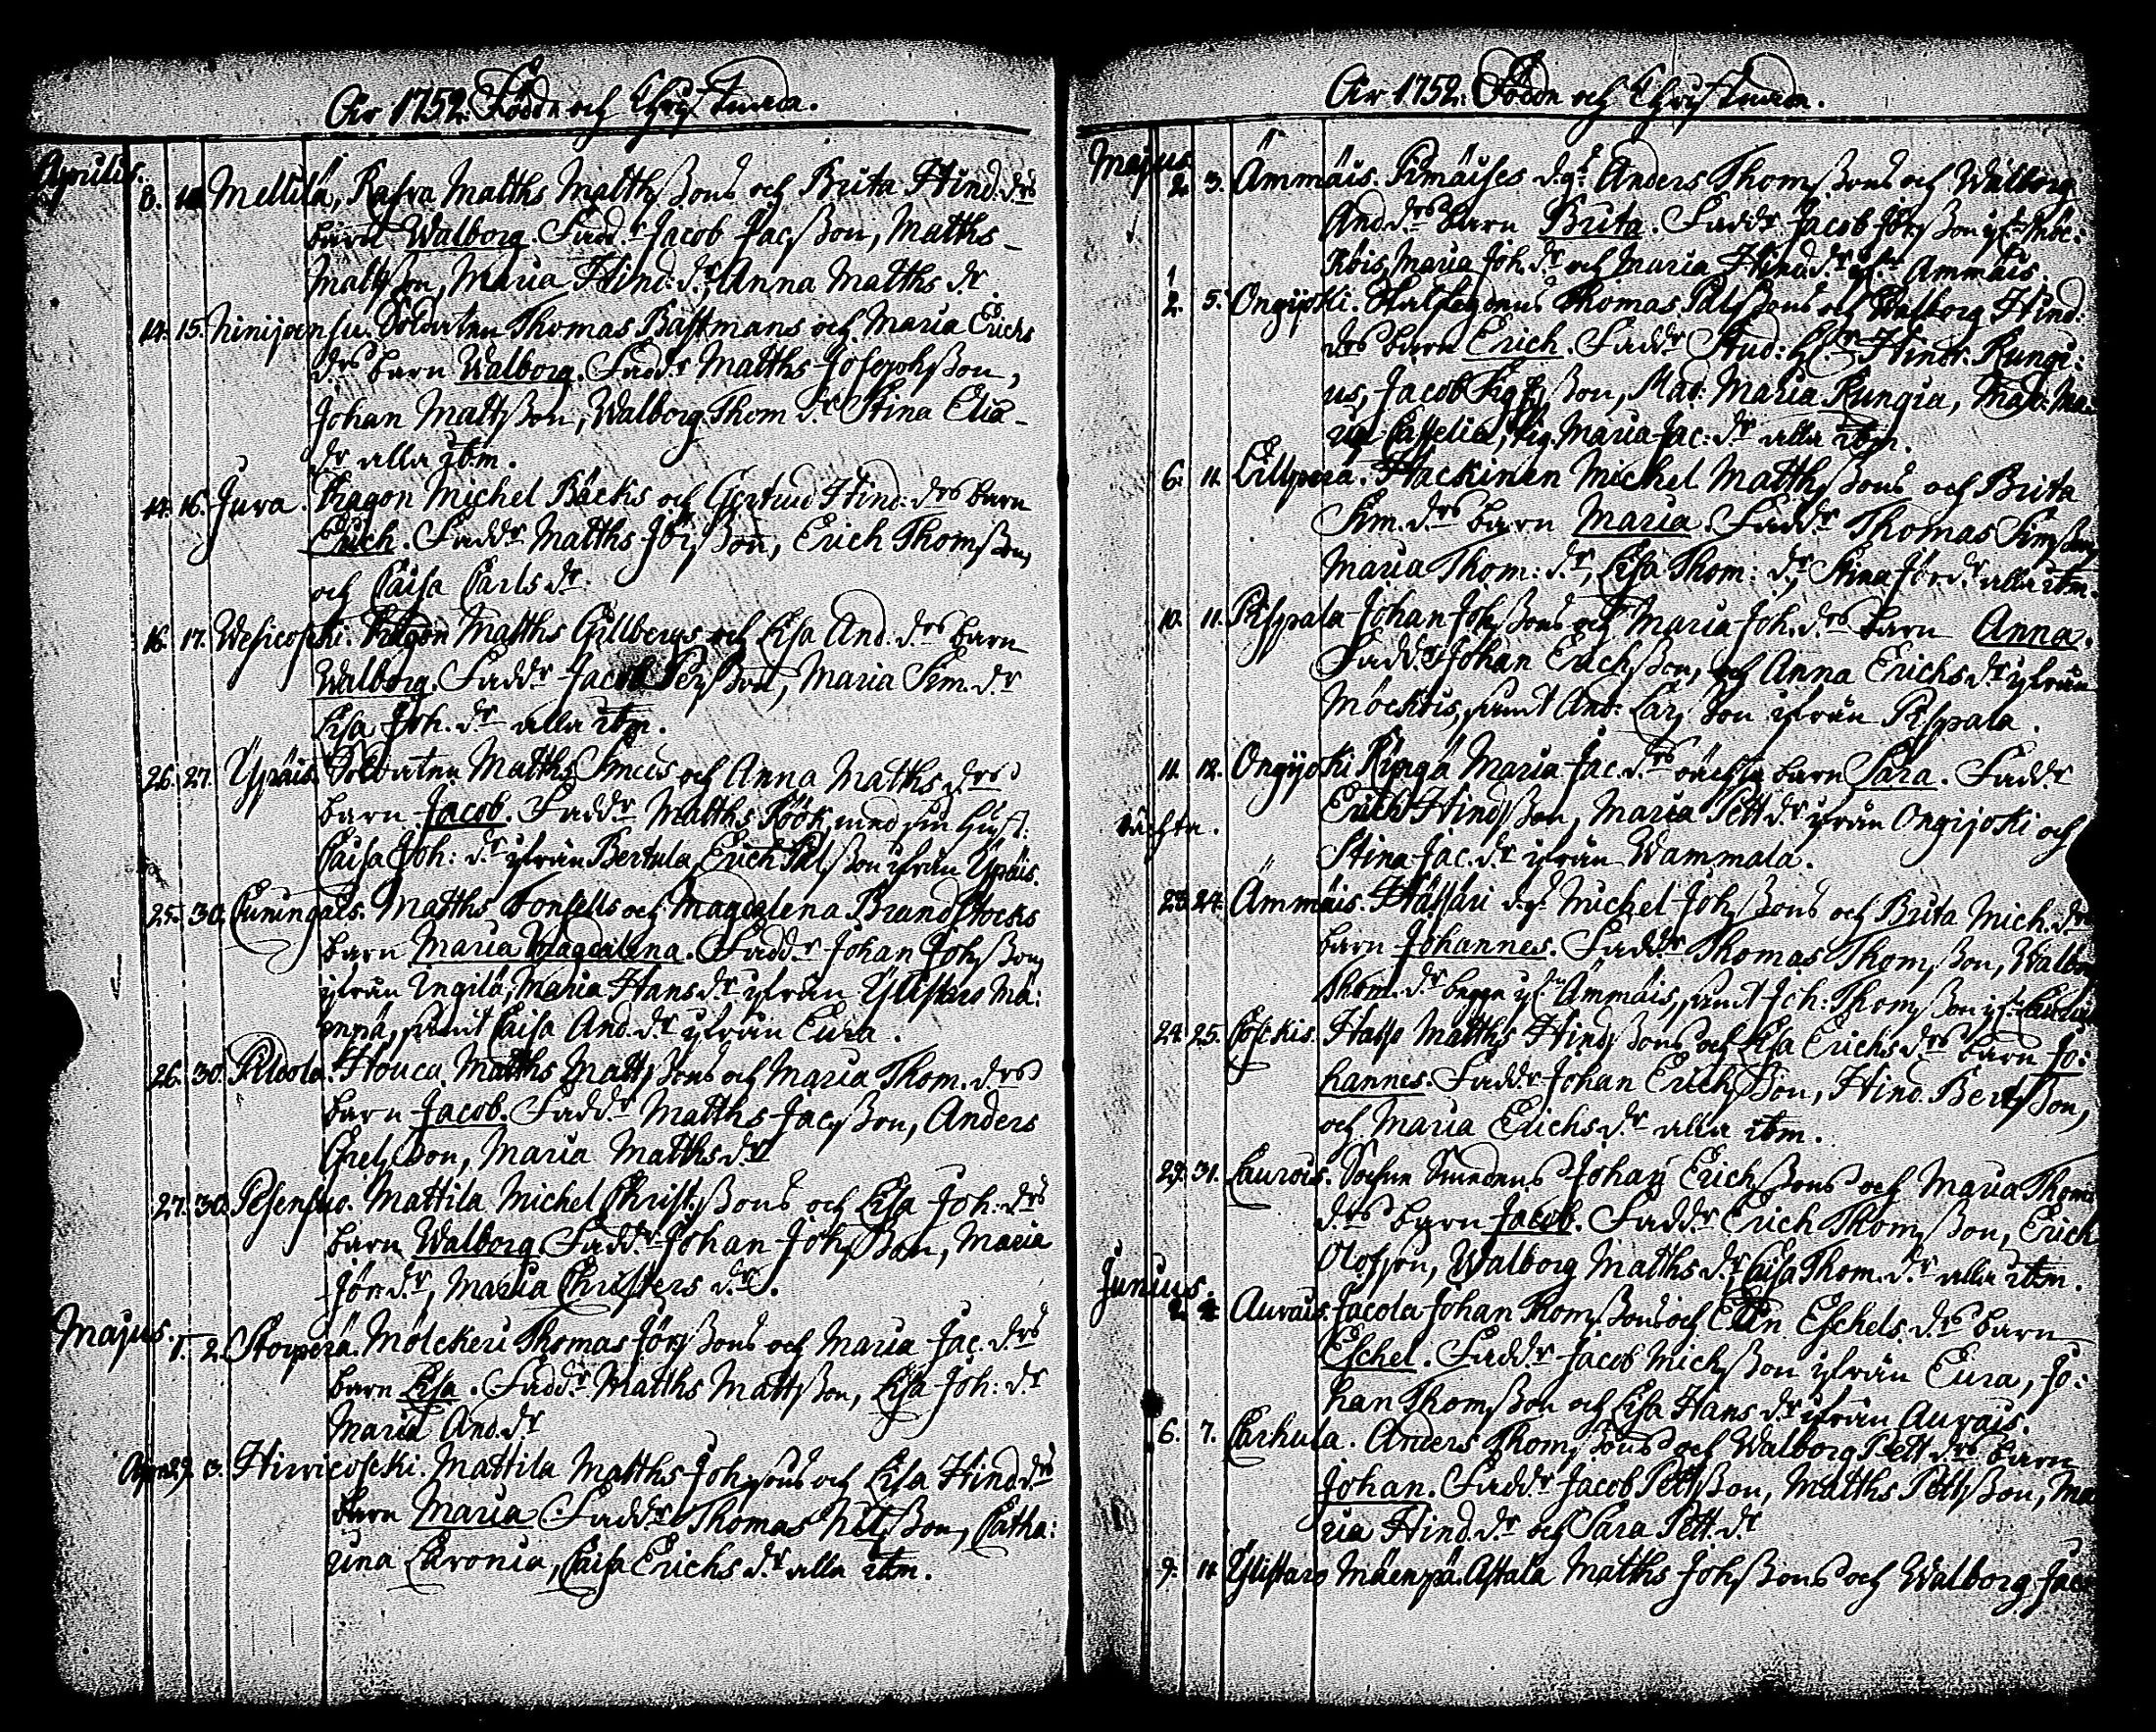 År 1752. Födde och Christnade.
Aprilis. 8. Mellilä, Matths Matthsons och Brita Hind. drs
barn Walborg. Fadd.r Jacob Jacsson, Matths
Mattsson, Maria Hind: dr, Anna Matths dr.
14. 15. Ninijoensu. Soldaten Thomas Bastmans och Maria Erichs
drs barn Walborg. Fadd.r Matths Josephsson,
Johan Mattsson, Walborg Thom dr Stina Elia-
dr alla ibm.
14. 16. Juva. Dragon Michel Bäcks och Gertrud Hind: drs barn
Erich. Fadd.r Matths Jörsson, Erich Thomsson
och Caisa Carls dr.
16. 17. Wesicoski. Dragon Matths Gillbergs och Lisa And. drs barn
Walborg. Fadd.r Jacob Persson, Maria Sim. dr
Lisa Joh. dr alla ibm.
26. 27. Ypäis. Soldaten Matths och Anna Matths drs
barn Jacob. Fadd.r Matths Röök, med sin hust.
Caisa Joh: dr ifrån Bertula, Erich Pålsson ifrån Ypäis.
25. 30. Cuningais. Matths Fonsells och Magdalena Brandstocks
barn Maria Magdalena. Fadd.r Johan Johsson
ifrån Ingilä, Maria Hans dr ifrån Ylistaro Mä:
enpä, samt Caisa And. dr ifrån Eura.
26. 30. Houcu Matths Mattsons och Maria Thom. drs
barn Jacob. Fadd.r Matths Jacsson, Anders
Chrelsson, Maria Matths dr
27. 30. Pesensuo. Mattila Michel Christ.sons och Lisa Joh: drs
barn Walborg. Fadd.r Johan Johsson, Maria
Jör. dr, Maria Christers dr.
Majus. 1. 2. Storperä. Mölckeri Thomas Jörsons och Maria Jac. drs
barn Lisa. Fadd.r Matths Mattsson, Lisa Joh: dr
Maria And. dr
Apr. 29. 3. Hirvicoscki. Mattila Matths Johsons och Lisa Hind. drs
barn Maria. Fadd.r Thomas Nilsson, Catha:
rina Levonia, Caisa Erichs dr alla ibm.
År 1752. Födde och Christnade.
Majus. 2. 3. Ämmäis. Anders Thomsons och Walborg
And. drs barn Brita. Fadd.r Jacob Jörsson
Maria Joh. dr och Maria Hind. dr Ämmäis.
2. 5. Ongijoki. Thomas Pålsons och Walborg Hind:
drs barn Erich. Fadd.r Stud: Hindr: Rungi:
us, Jacob Sigfrsson, Mad: Maria Rungia, Mad: Ma
ria Casselia, Pig. Maria Jac: dr alla ibm.
6. 11. Lillperä. Hackinen Michel Matthsons och Brita
Sim. drs barn Maria. Fadd.r Thomas Simsson
Maria Thom: dr, Lisa Thom: dr, Stina Jör dr alla ibm.
10. 11. Pispala Johan Johsons och Maria Joh. drs barn Anna.
Fadd.r Johan Erichsson, och Anna Erichs dr ifrån
Möckois, samt And: Larsson ifrån Pispala.
11. 12. Ongijoki Maria Jac. drs oächta barn Sara. Fadd.r
Erich Hindsson, Maria Pett dr ifrån Ongijoki och
oächta.
Stina Jac. dr ifrån Wammala.
23. 24. Ämmäis. Hassari Michel Johsons och Brita Mich. drs
barn Johannes. Fadd.r Thomas Thomsson, Walborg
Thom. dr begge Ämmäis, samt Joh: Thomsson
24. 25. Coskis. Hasso Matths Hindsons och Lisa Erichs drs barn Jo:
hannes. Fadd.r Johan Erichsson, Hind. Bertsson,
och Maria Erichs dr alla ibm.
29. 31. Laurois. Sockne Smedens Johan Erichsons och Maria Thoms
drs barn Jacob. Fadd.r Erich Thomsson, Erich
Olofson, Walborg Matths dr, Caisa Thom. dr alla ibm.
Junius. 2. 4. Aurais. Jacola Johan Thomsons och Elin Eschels drs barn
Eschel. Fadd.r Jacob Michsson ifrån Eura, Jo:
han Thomsson och Lisa Hans dr ifrån Aurais.
6. 7. Carhula. Anders Thomsons och Walborg Pett. drs barn
Johan. Fadd.r Jacob Pettsson, Matths Pettsson, Ma
ria Hind. dr och Sara Pett. dr
9. 11. Ylistaro Mäenpä. Astala Matths Johsons och Walborg Jac